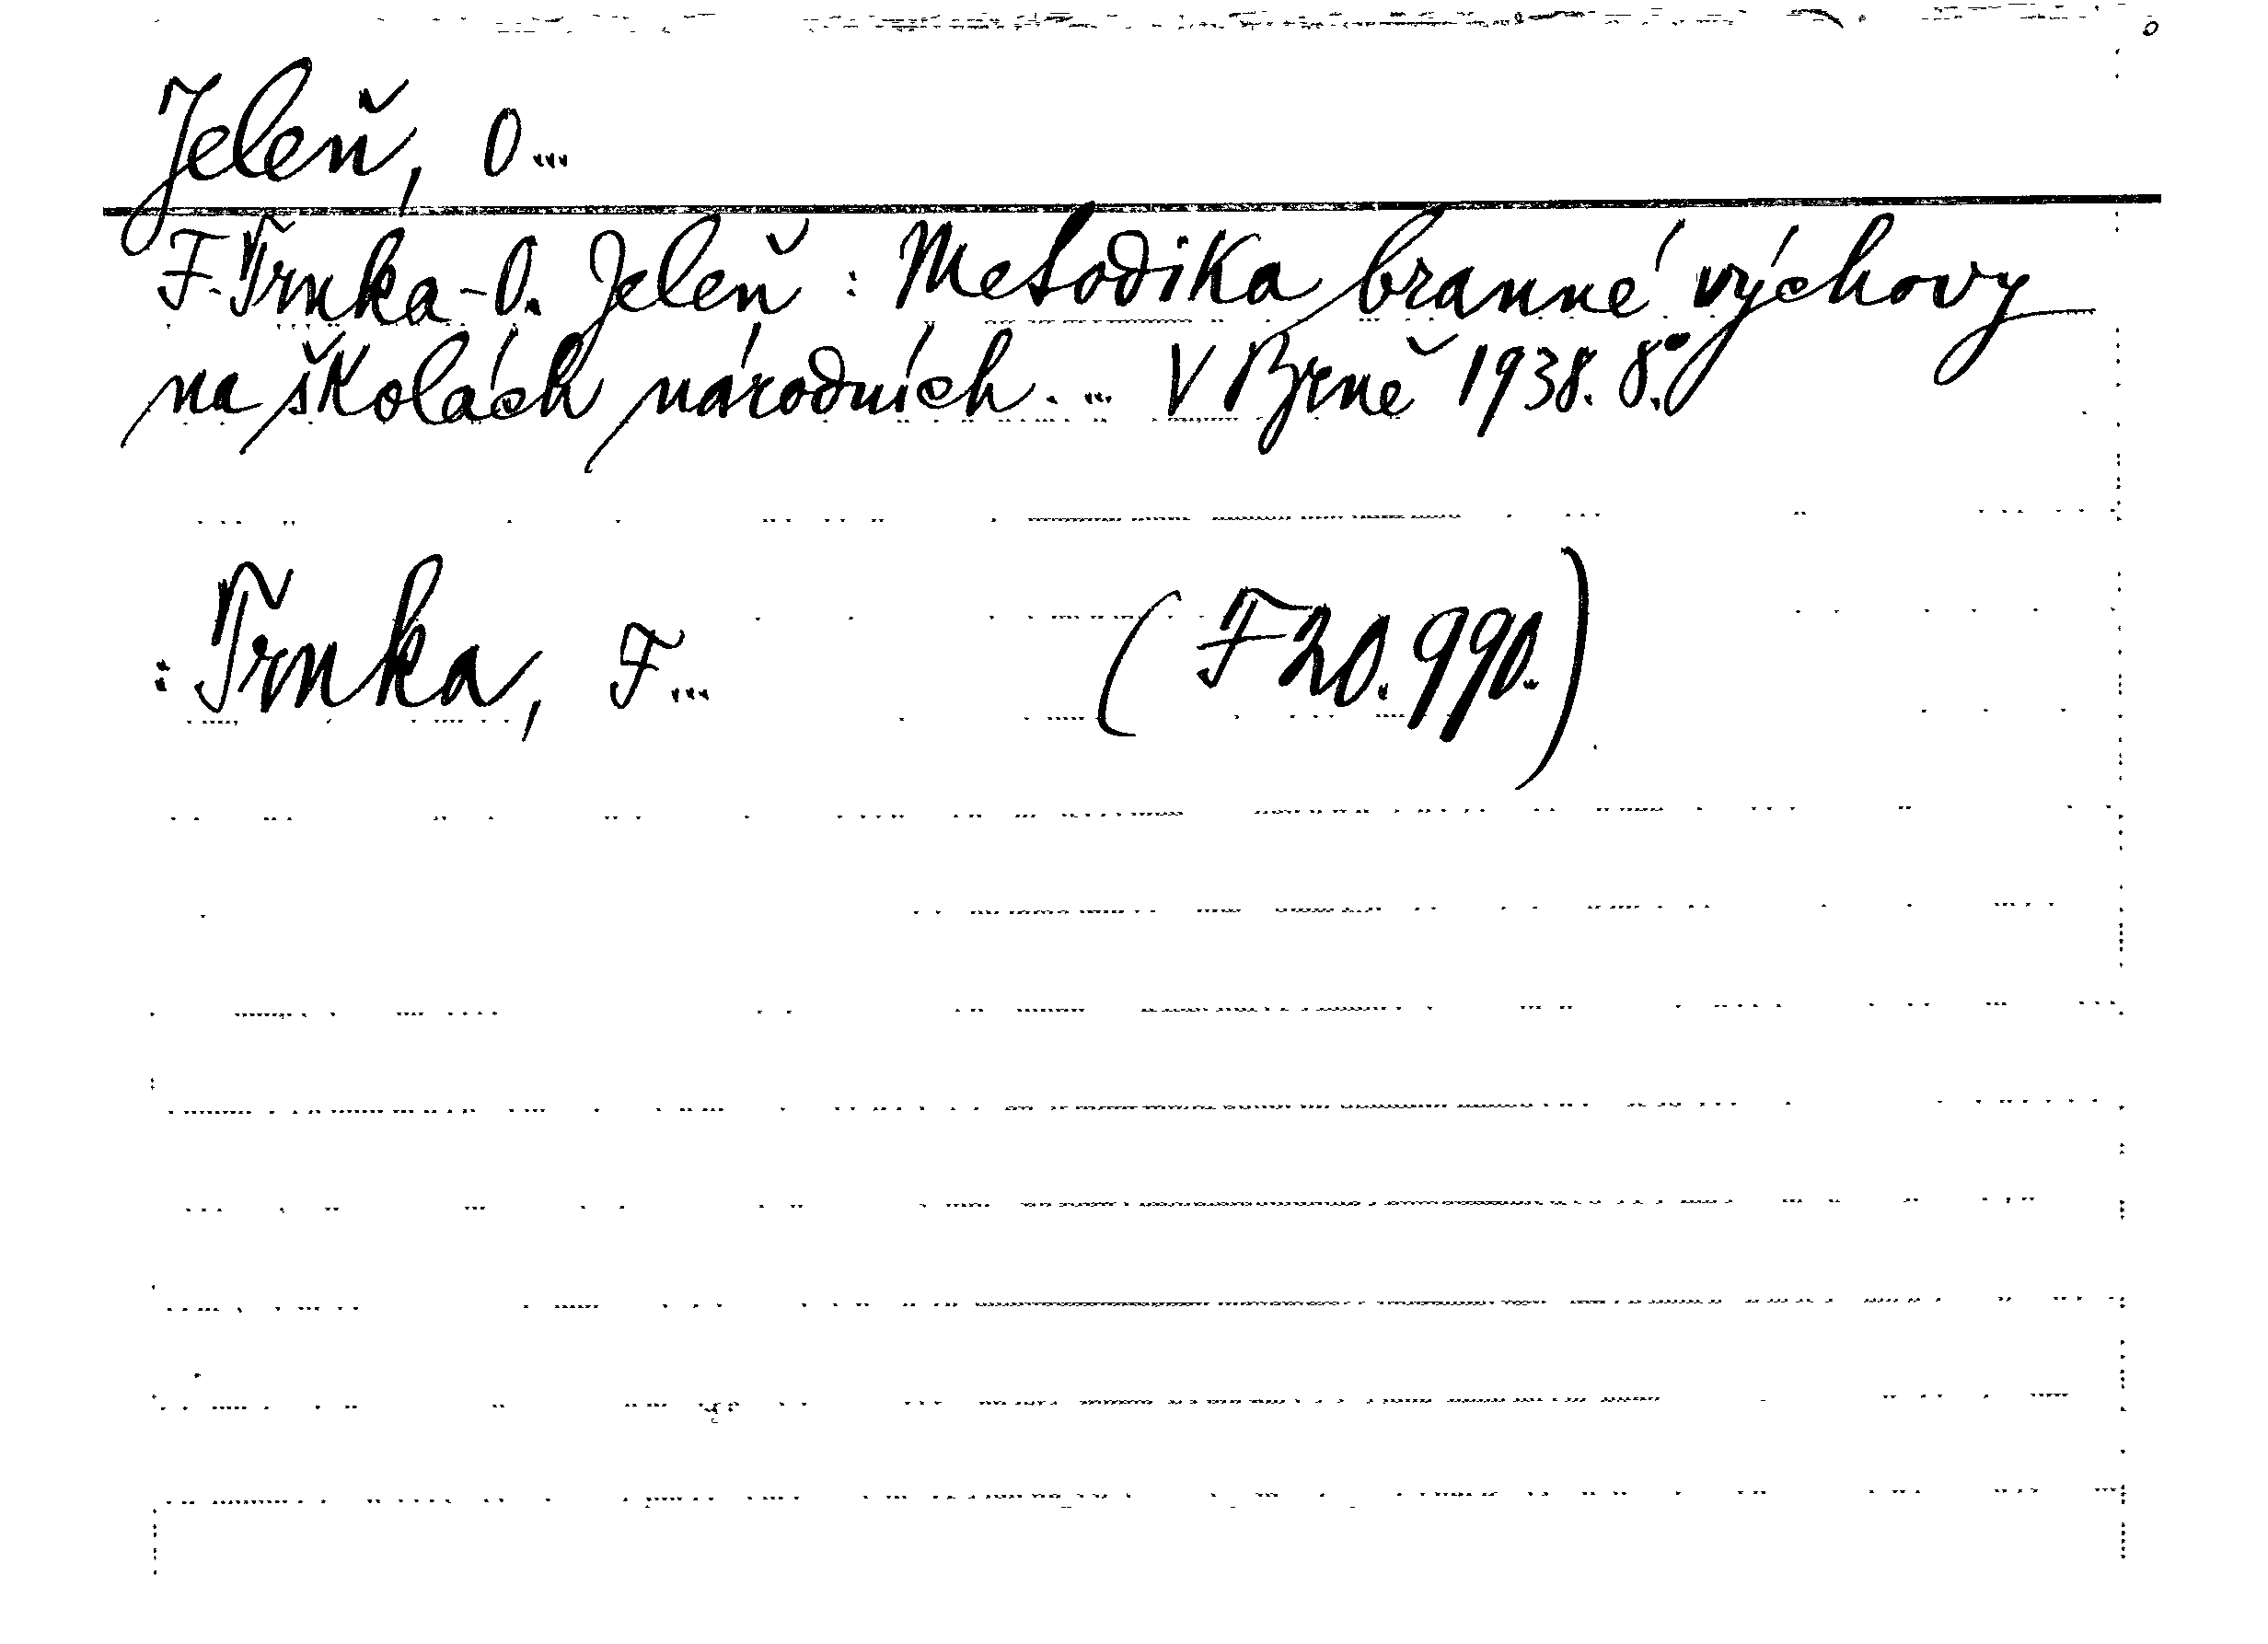 Jeleň, O...
F. Trnka - O. Jeleň : Metodika branné výchovy
na školách národních. ... V Brně 1938. 8.°
: Trnka, F... (F 20.990.)